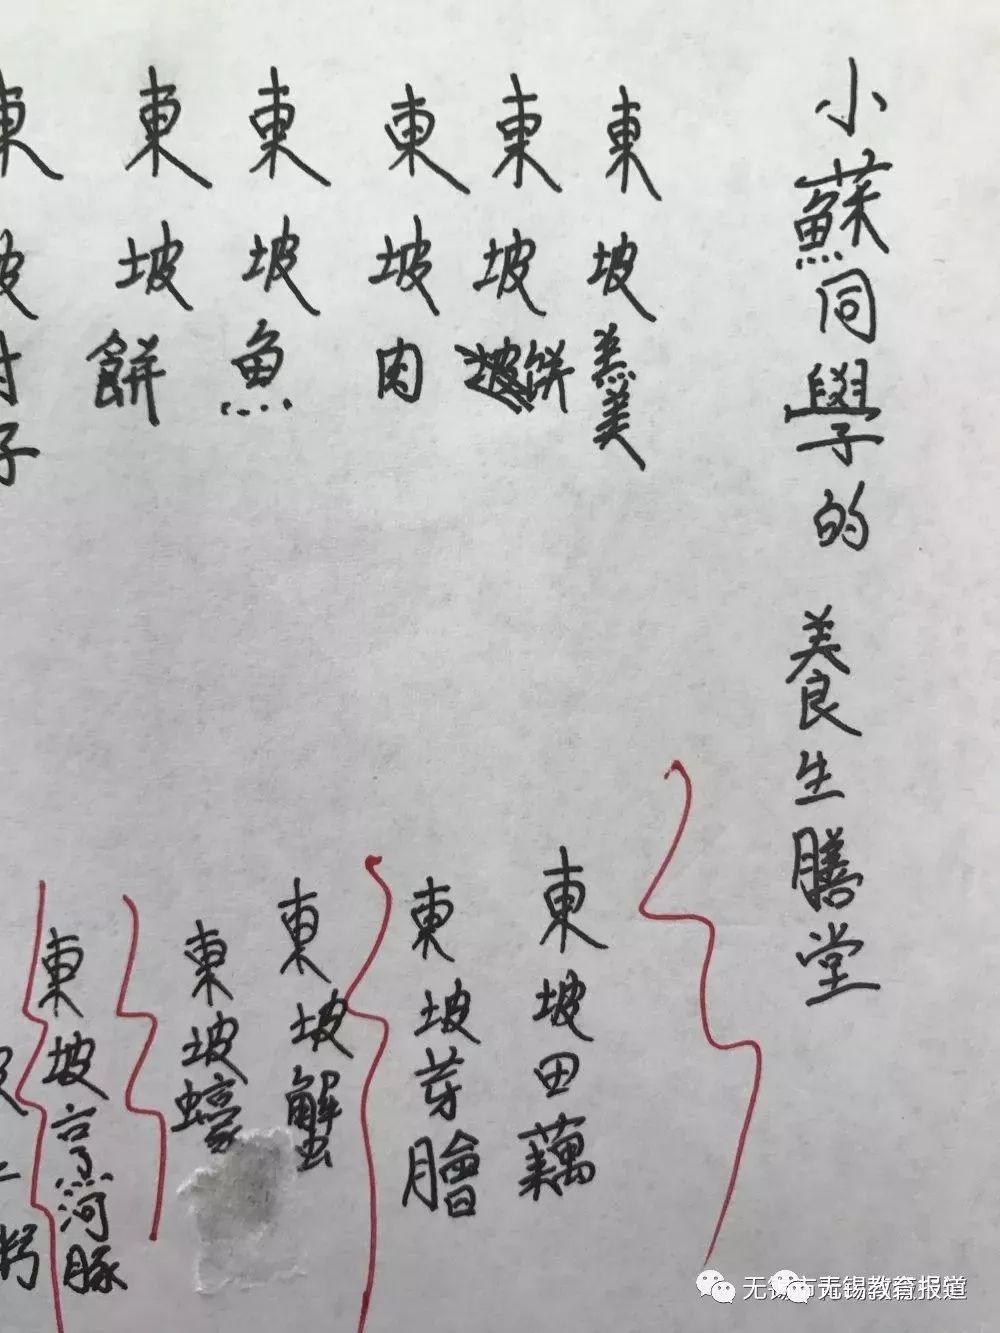 小蘇同學的 養生膳堂
東坡羹
東坡餅
東坡肉
東坡魚
東坡餅
東坡肘子
東坡田藕
東坡芽膾
東坡蟹
東坡蠔
東坡烹河豚
无锡教育报道